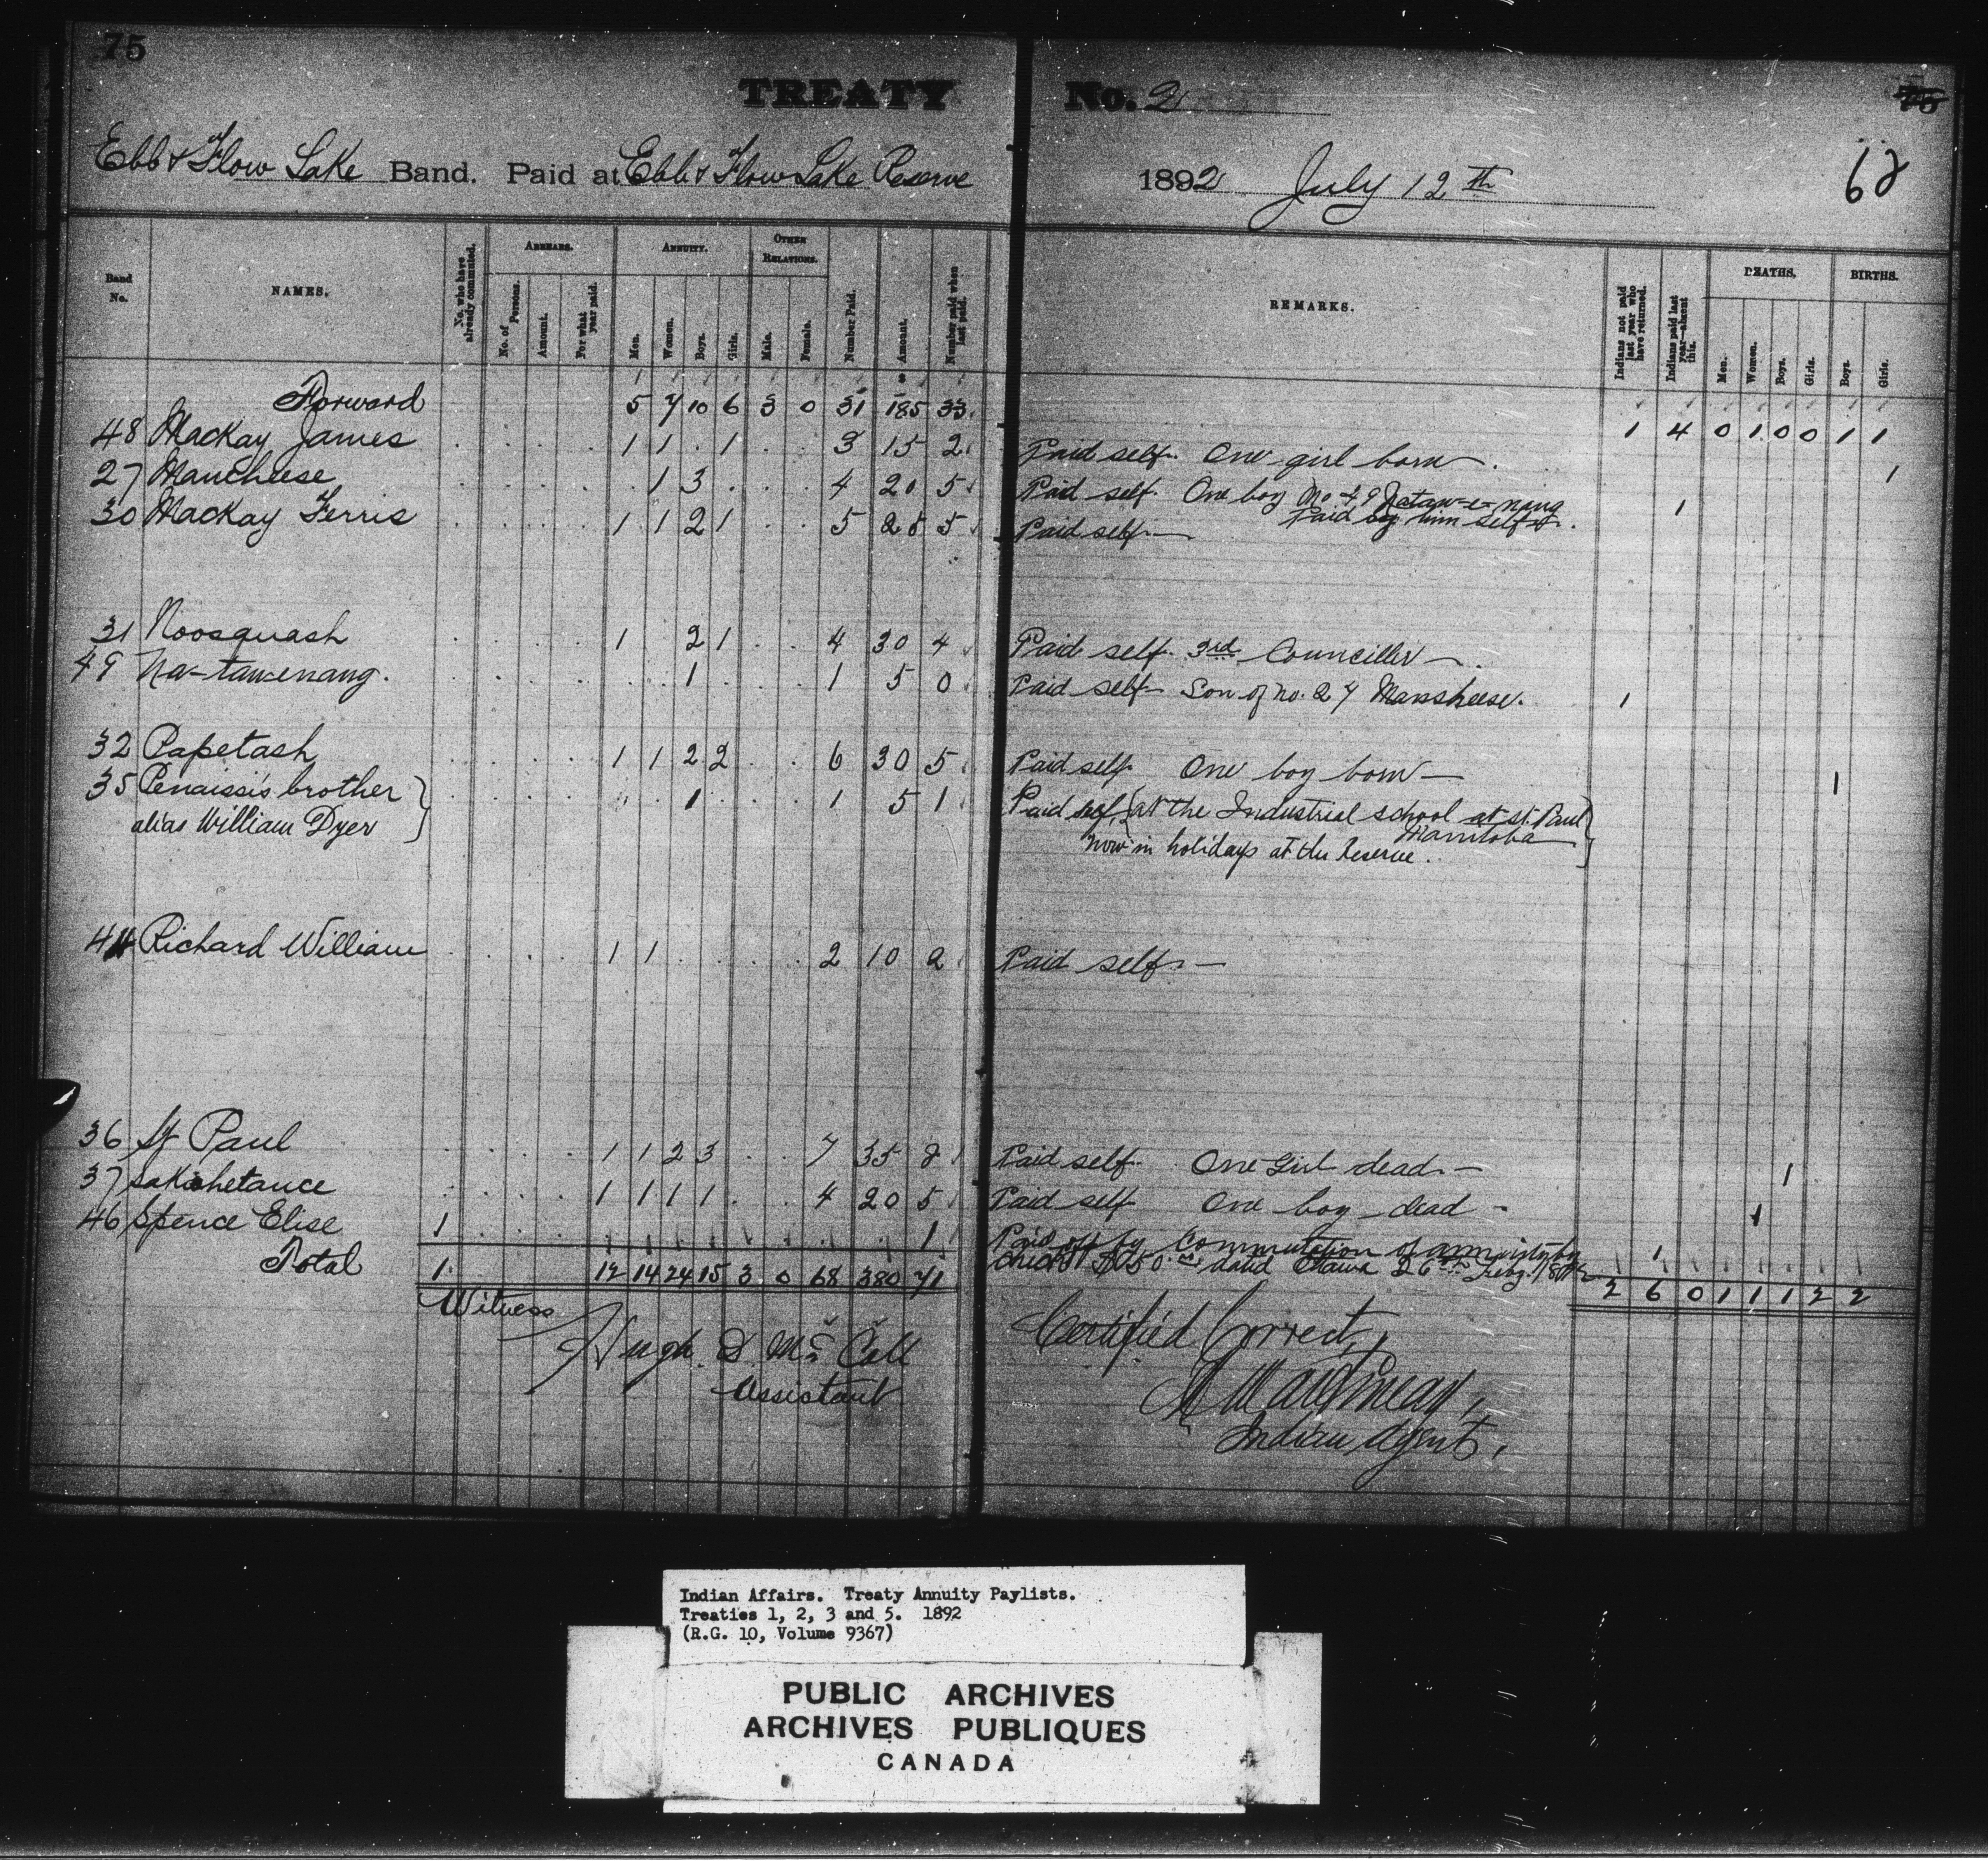 75
TREATY No. 2
75
Ebb & Flow Lake Band. Paid at Ebb & Flow Lake Reserve 1892 July 12th
62
Band No. NAMES. No. who have already commuted. ARREARS. No. of Persons. Amount. For what year paid. ANNUITY. Men. Women. Boys. Girls. OTHER RELATIONS. Male. Female. Number Paid. Amount. Number paid when last paid. REMARKS. Indians not paid last year who have returned. Indians paid last year—absent this. DEATHS. Men. Women. Boys. Girls. BIRTHS. Boys. Girls.
Forward 5 7 10 6 3 0 31 185 33 1 4 0 1 0 0 1 1
48 Mackay James 1 1 1 3 15 2 Paid self. One girl born 1
27 Mancheese 1 3 4 20 5 Paid self. One boy No 49 Nataw-e-nang
Paid by him self 1
30 Mackay Ferris 1 1 2 1 5 25 5 Paid self
31 Noosquash 1 2 1 4 30 4 Paid self 3rd Counciller
49 Na-tawenang. 1 1 5 0 Paid self Son of no. 27 Mansheese. 1
32 Papetash 1 1 2 2 6 30 5 Paid self One boy born 1
35 Penaissis brother 1 1 5 1 Paid self at the Industrial school at St. Paul
alias William Dyer Manitoba
now in holidays at the Reserve.
44 Richard William 1 1 2 10 2 Paid self
36 St Paul 1 1 2 3 7 35 8 Paid self One girl dead 1
37 Sakichetance 1 1 1 1 4 20 5 Paid self One boy dead 1
46 Spence Elise 1 1 Paid off by Commutation of annuity by 1
check $50.00 dated Ottawa 26th Feby.
Total 1 12 14 24 15 3 0 68 380 71 2 6 0 1 1 1 2 2
Witness
Hugh D. McColl
Assistant
Certified Correct,
Martineau,
Indian Agent,
Indian Affairs. Treaty Annuity Paylists.
Treaties 1, 2, 3 and 5. 1892
(R.G. 10, Volume 9367)
PUBLIC ARCHIVES
ARCHIVES PUBLIQUES
CANADA